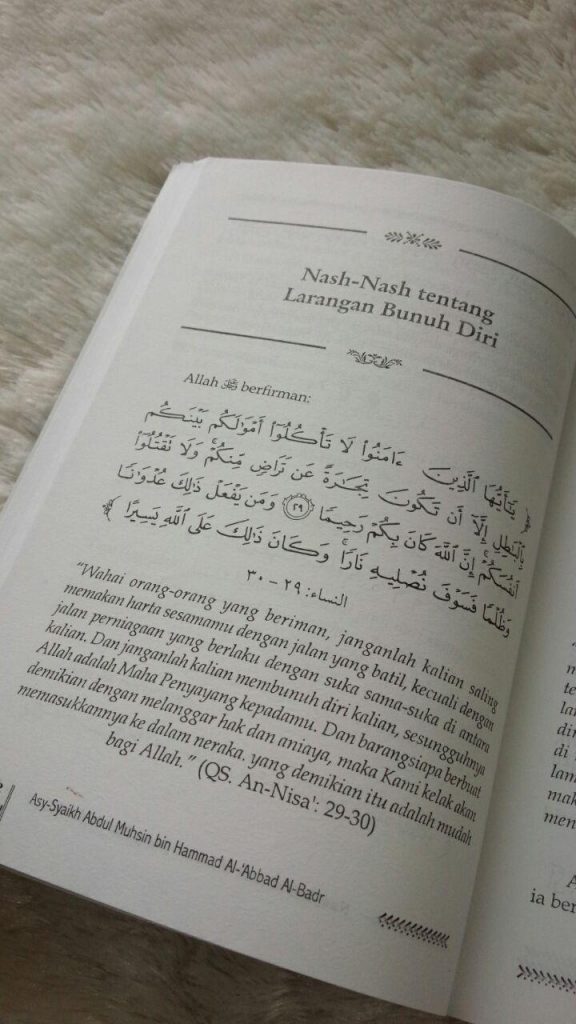 Nash-Nash tentang
Larangan Bunuh Diri
Allah ﷻ berfirman:
﴿ يَٰٓأَيُّهَا ٱلَّذِينَ ءَامَنُوا۟ لَا تَأْكُلُوٓا۟ أَمْوَٰلَكُم بَيْنَكُم
بِٱلْبَٰطِلِ إِلَّآ أَن تَكُونَ تِجَٰرَةً عَن تَرَاضٍ مِّنكُمْ ۚ وَلَا تَقْتُلُوٓا۟
أَنفُسَكُمْ ۚ إِنَّ ٱللَّهَ كَانَ بِكُمْ رَحِيمًا ٢٩ وَمَن يَفْعَلْ ذَٰلِكَ عُدْوَٰنًا
وَظُلْمًا فَسَوْفَ نُصْلِيهِ نَارًا ۚ وَكَانَ ذَٰلِكَ عَلَى ٱللَّهِ يَسِيرًا ﴾
النساء: ٢٩ - ٣٠
"Wahai orang-orang yang beriman, janganlah kalian saling
memakan harta sesamamu dengan jalan yang batil, kecuali dengan
jalan perniagaan yang berlaku dengan suka sama-suka di antara
kalian. Dan janganlah kalian membunuh diri kalian, sesungguhnya
Allah adalah Maha Penyayang kepadamu. Dan barangsiapa berbuat
demikian dengan melanggar hak dan aniaya, maka Kami kelak akan
memasukkannya ke dalam neraka. yang demikian itu adalah mudah
bagi Allah." (QS. An-Nisa': 29-30)
Asy-Syaikh Abdul Muhsin bin Hammad Al-'Abbad Al-Badr